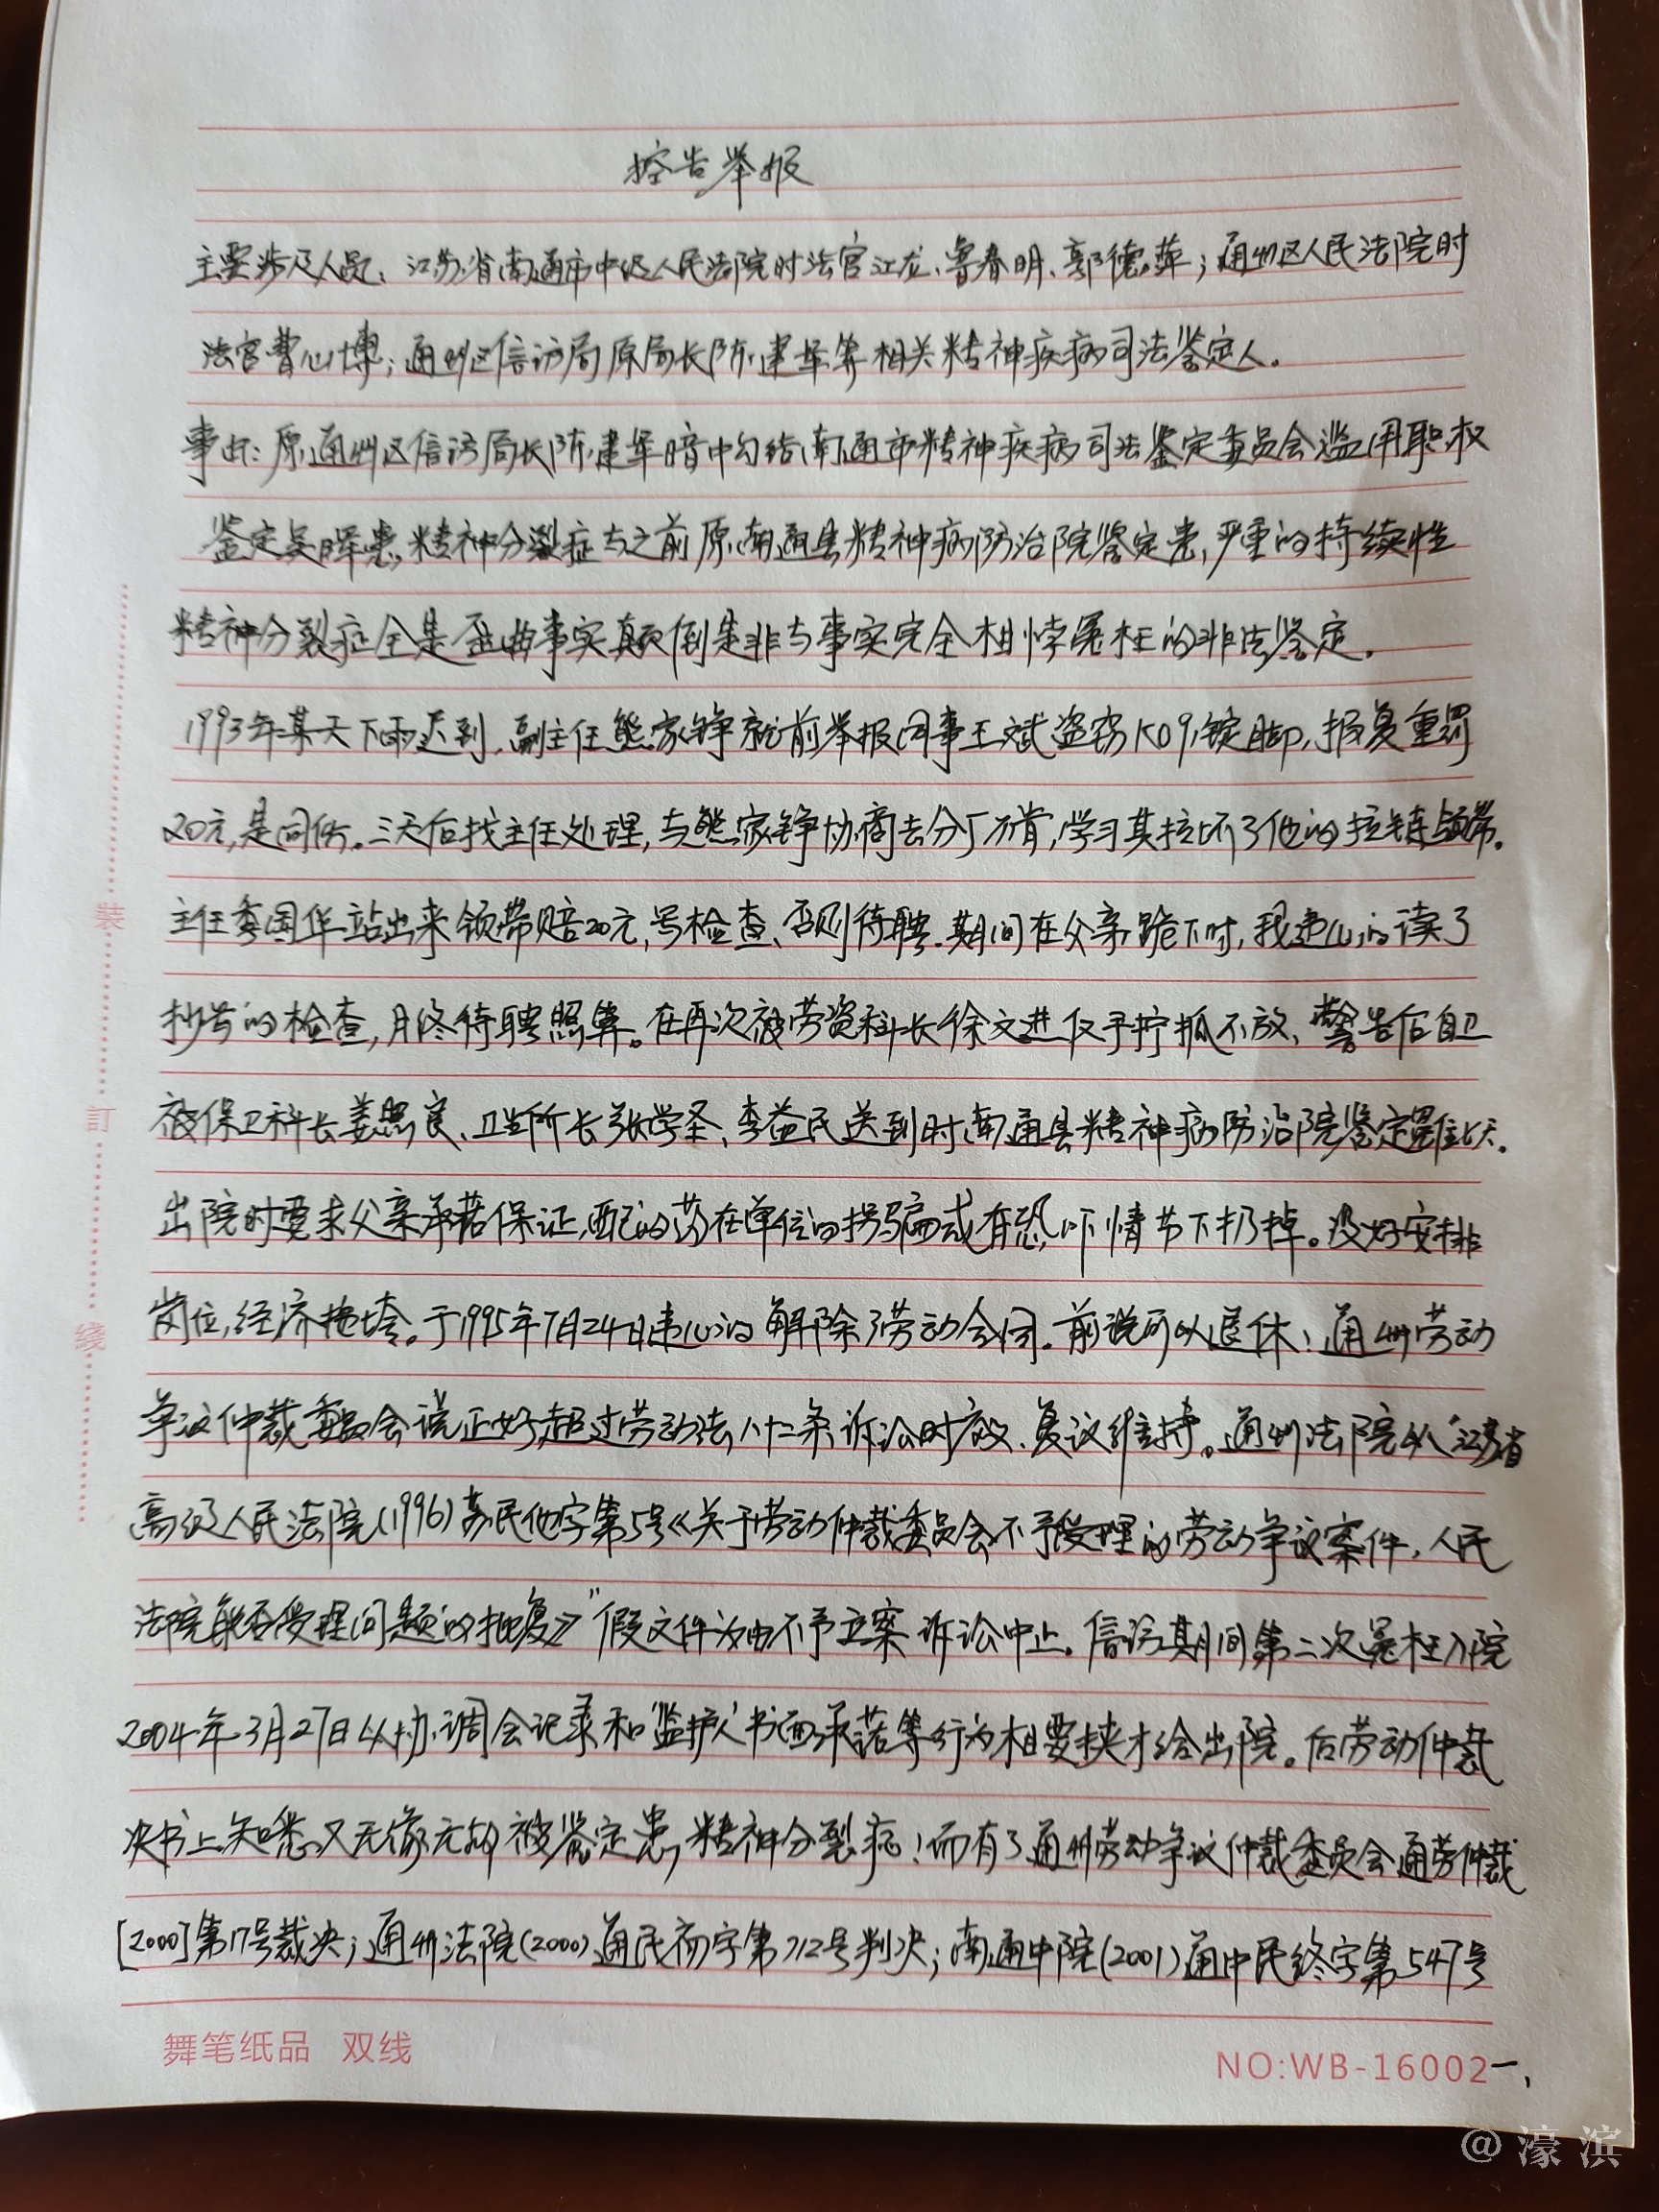 控告举报
主要涉及人员：江苏省南通市中级人民法院时法官江龙、鲁春明、郭德萍；通州区人民法院时
法官曹心博；通州区信访局原局长陈建华等相关精神疾病司法鉴定人。
事由：原通州区信访局长陈建华暗中勾结南通市精神疾病司法鉴定委员会滥用职权
鉴定吴晖患，精神分裂症与之前原南通县精神病防治院鉴定患，严重的持续性
精神分裂症全是歪曲事实颠倒是非与事实完全相悖冤枉的非法鉴定。
1993年某天下雨迟到，副主任熊家铮就前举报同事王斌盗窃K09锭脚，报复重罚
20元，是同伤。三天后找主任处理，与熊家铮协商去分厂不肯，学习其拉坏了他的拉链领带。
主任季国华站出来领带赔20元，写检查、否则待聘。期间在父亲跪下时，我违心的读了
抄写的检查，月终待聘照算。在再次被劳资科长徐文进反手拧抓不放、警告后自卫
被保卫科长姜照良、卫生所长张学圣、李益民送到时南通县精神病防治院鉴定 七天。
出院时要求父亲承诺保证，配的药在单位的拐骗或有恐吓情节下扔掉。没好安排
岗位，经济拖垮。于1995年7月24日违心的解除了劳动合同。前说可以退休！通州劳动
争议仲裁委员会说正好超过劳动法八十二条诉讼时效、复议维持。通州法院以“江苏省
高级人民法院(1996)苏民他字第5号《关于劳动仲裁委员会不予受理的劳动争议案件，人民
法院能否受理问题的批复》”假文件为由不予立案 诉讼中止。信访期间第二次冤枉入院
2004年3月27日以协调会记录和‘监护人’书面承诺等行为相要挟才给出院。后劳动仲裁
决书上知悉又无缘无故被鉴定患，精神分裂症！而有了通州劳动争议仲裁委员会通劳仲裁
[2000]第17号裁决；通州法院(2000)通民初字第712号判决；南通中院(2001)通中民终字第547号
裝
訂
綫
舞笔纸品 双线
NO:WB-16002
一、
@濠滨